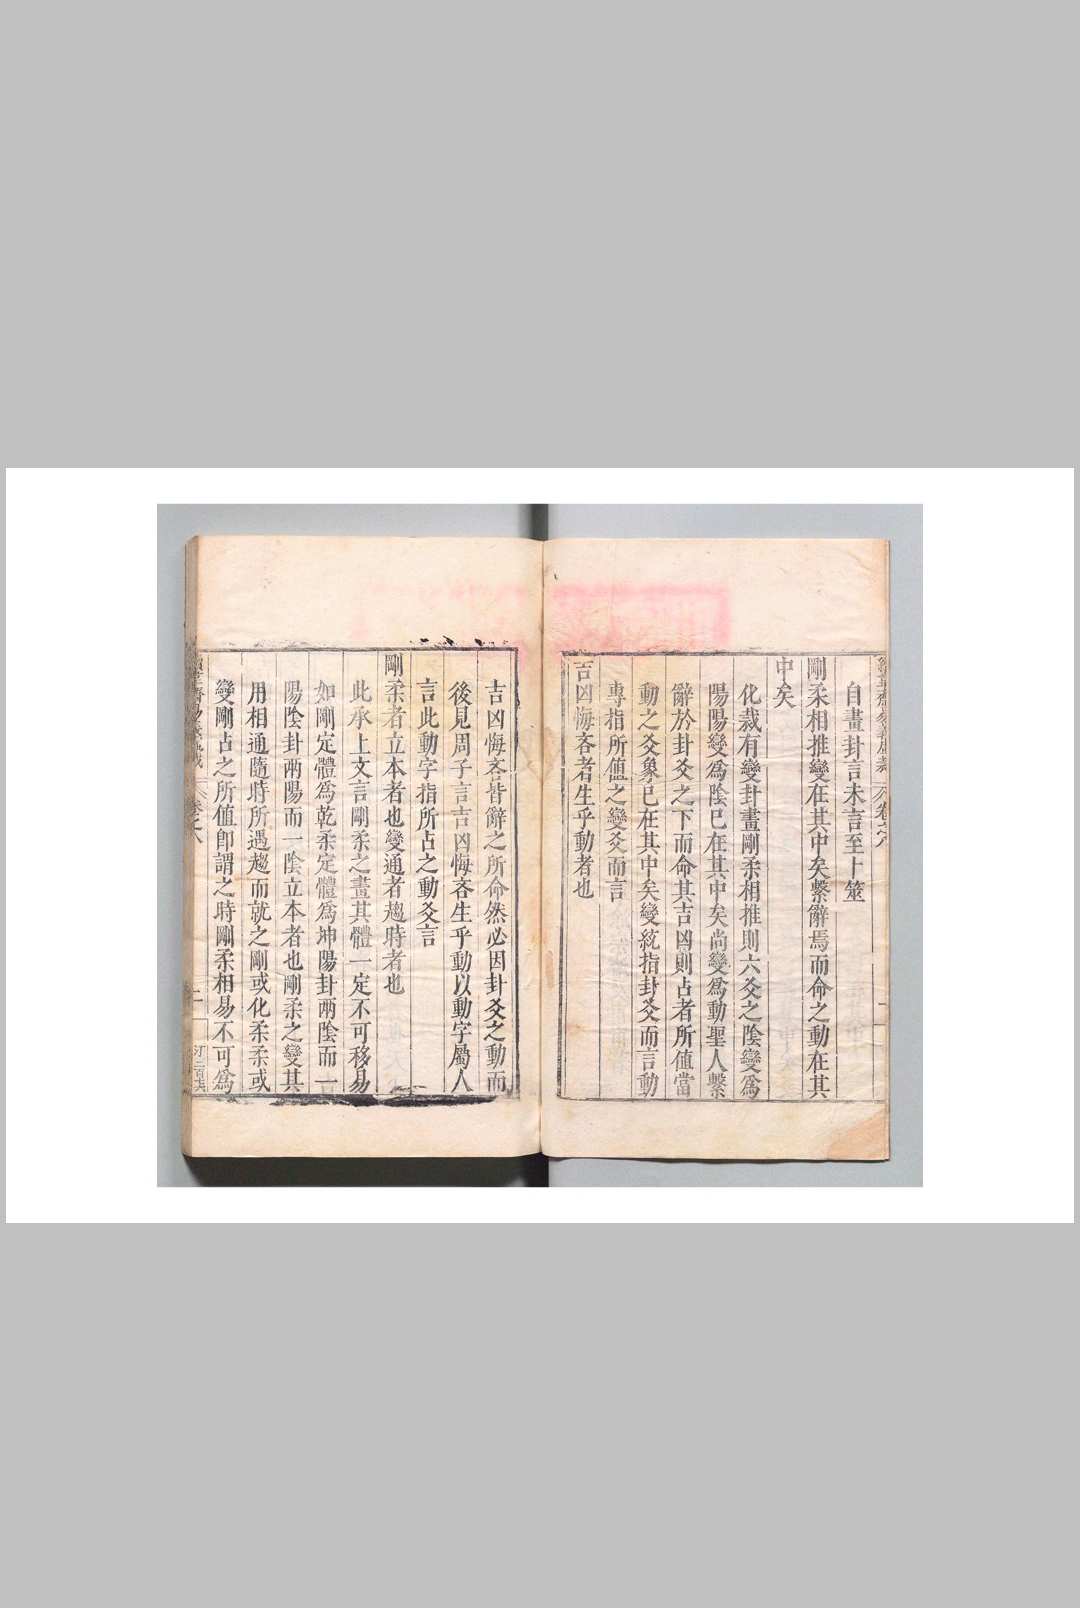 自畫卦言未言至卜筮
剛柔相推變在其中矣繫辭焉而命之動在其
中矣
化裁有變卦畫剛柔相推則六爻之陰變爲
陽陽變爲陰已在其中矣尚變爲動聖人繫
辭於卦爻之下而命其吉凶則占者所值當
動之爻象已在其中矣變統指卦爻而言動
專指所值之變爻而言
吉凶悔吝者生乎動者也
吉凶悔吝皆辭之所命然必因卦爻之動而
後見周子言吉凶悔吝生乎動以動字屬人
言此動字指所占之動爻言
剛柔者立本者也變通者趨時者也
此承上文言剛柔之畫其體一定不可移易
如剛定體爲乾柔定體爲坤陽卦兩陰而一
陽陰卦兩陽而一陰立本者也剛柔之變其
用相通隨時所遇趨而就之剛或化柔柔或
變剛占之所值卽謂之時剛柔相易不可爲